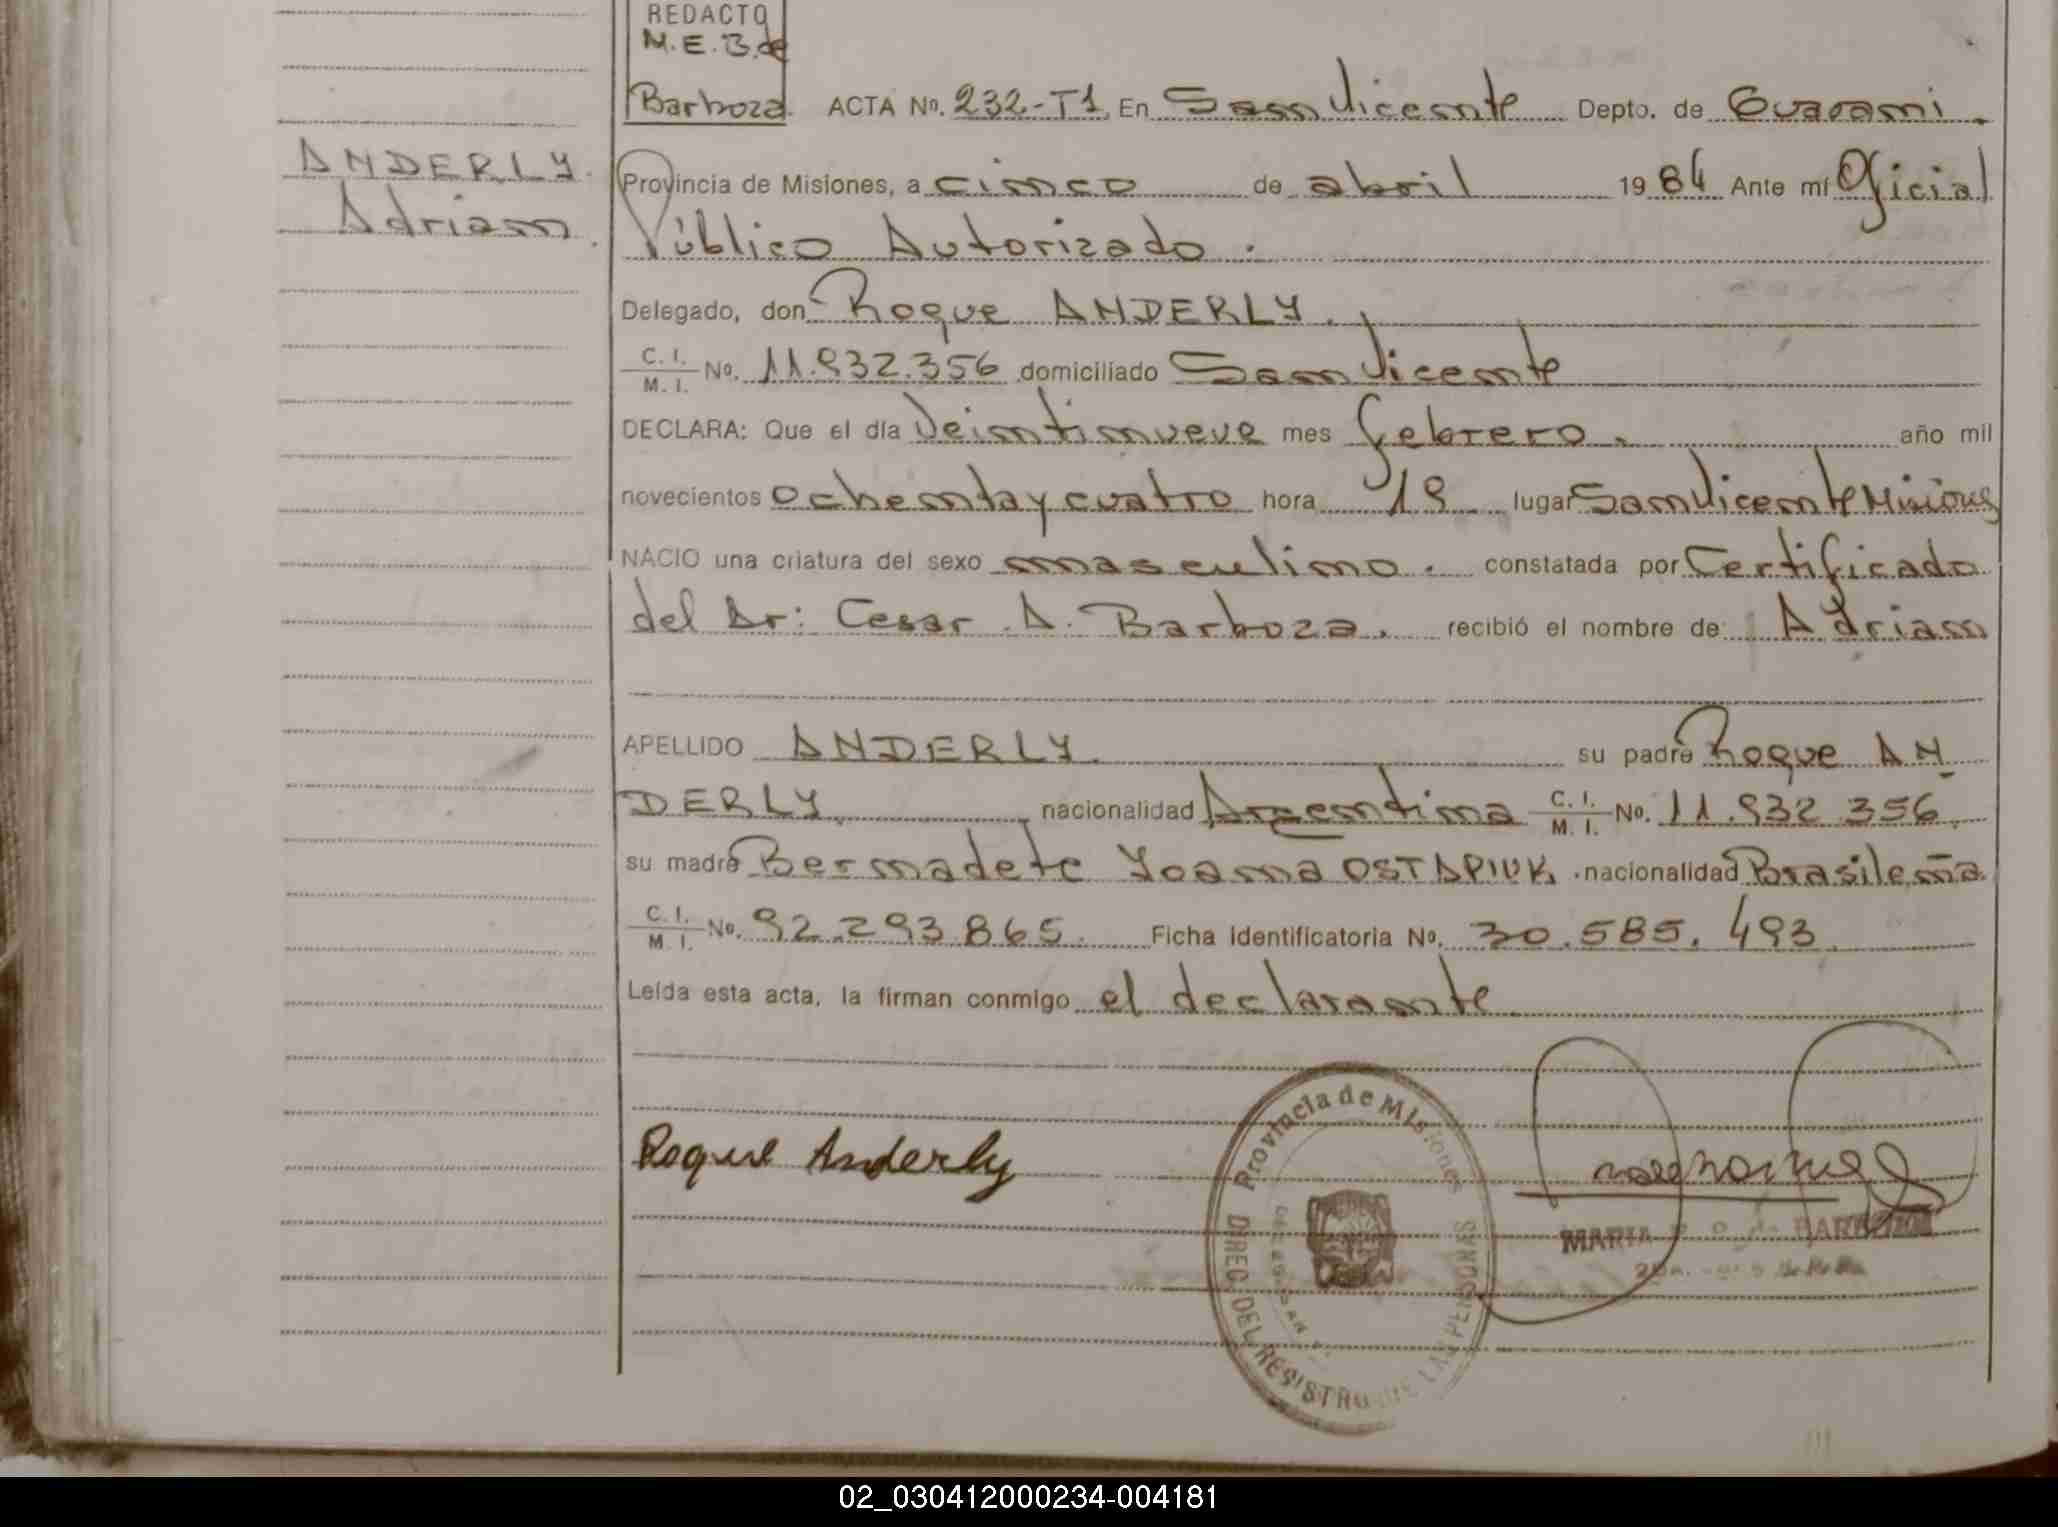 REDACTO
M.E.B. de
Barboza. ACTA Nº. 232-T1 En San Vicente Depto. de Guarani.
ANDERLY.
Adrian.
Provincia de Misiones, a cinco de abril 1984 Ante mí Oficial
Público Autorizado.
Delegado, don Roque ANDERLY.
C. I. / M. I. Nº. 11.932.356 domiciliado San Vicente
DECLARA: Que el día Veintinueve mes febrero. año mil
novecientos ochenta y cuatro hora 19 lugar San Vicente Misiones
NACIO una criatura del sexo masculino. constatada por Certificado
del Dr: Cesar A. Barboza. recibió el nombre de: Adrian
APELLIDO ANDERLY. su padre Roque AN
DERLY. nacionalidad Argentina C. I. / M. I. Nº. 11.932.356.
su madre Bernadete Yoana OSTAPIUK. nacionalidad Brasileña
C. I. / M. I. Nº. 92.293.865. Ficha identificatoria Nº. 30.585.493.
Leída esta acta, la firman conmigo el declarante.
Roque Anderly
Provincia de Misiones
DIREC. DEL REGISTRO DE LAS PERSONAS
MARIA de BARBOZA
02_030412000234-004181